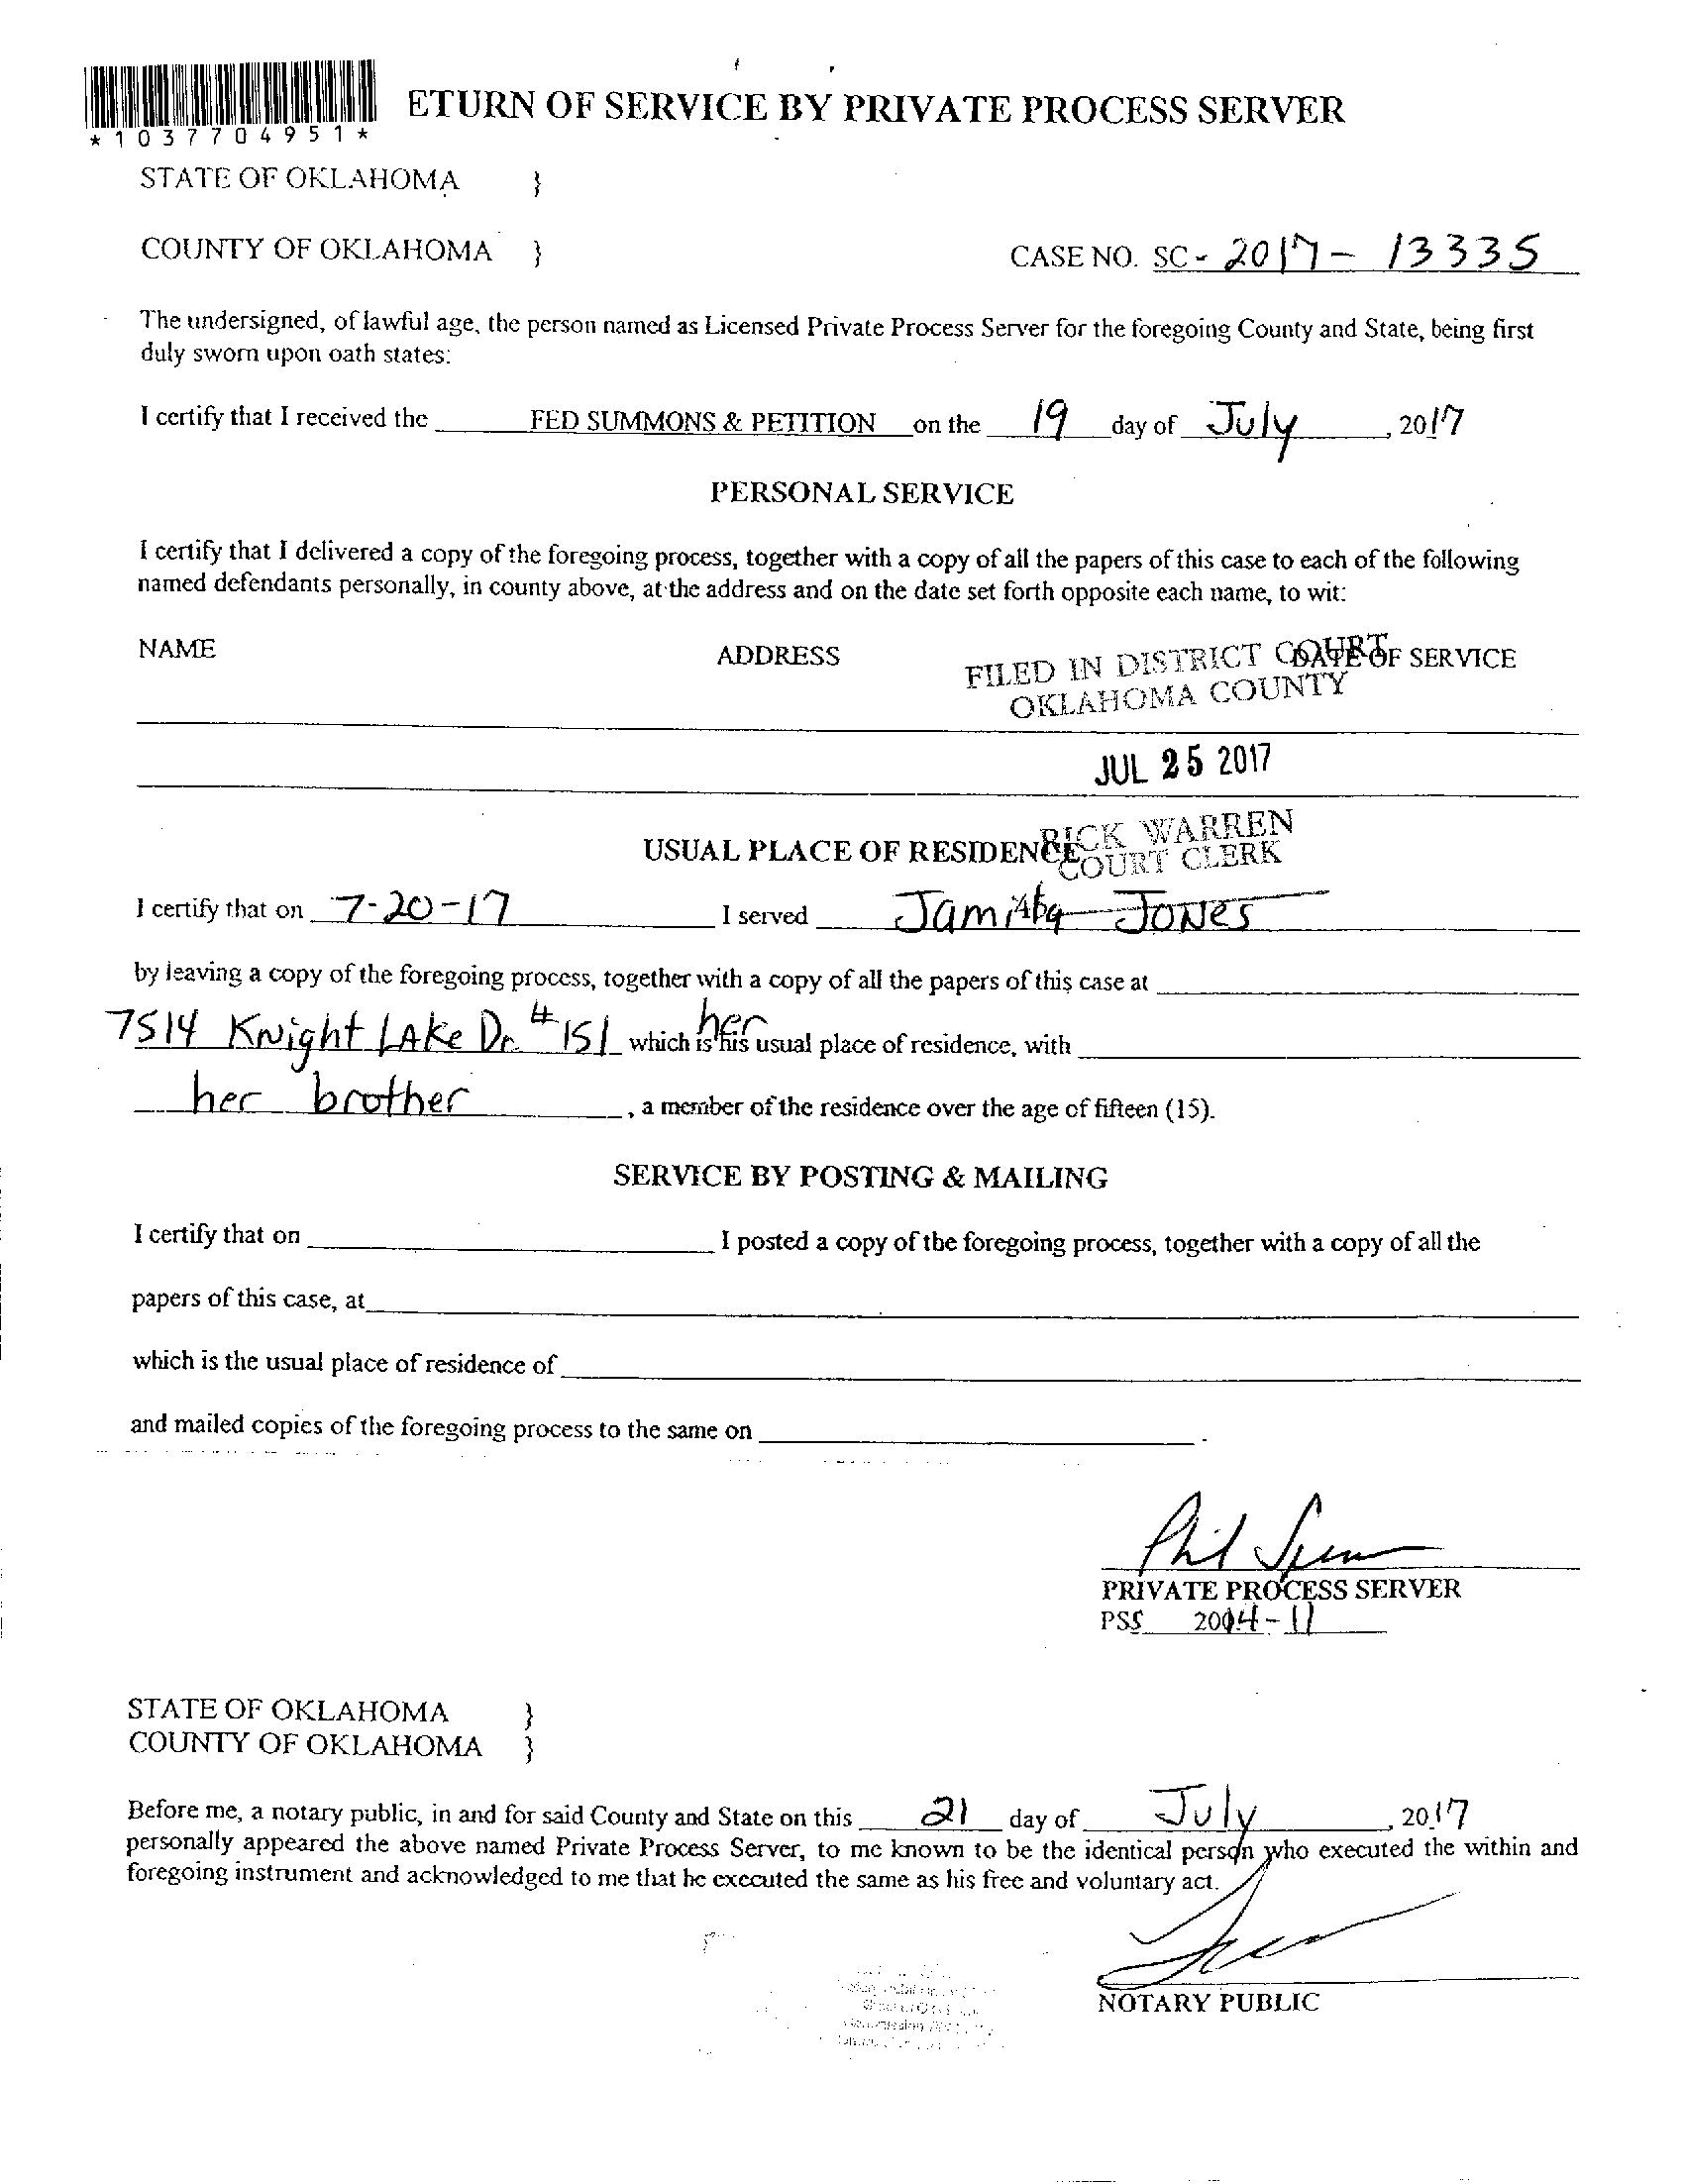 ETURN OF SERVICE BY PRIVATE PROCESS SERVER
*1037704951*
STATE OF OKLAHOMA }
COUNTY OF OKLAHOMA } CASE NO. SC - 2017 - 13335
The undersigned, of lawful age, the person named as Licensed Private Process Server for the foregoing County and State, being first
duly sworn upon oath states:
I certify that I received the FED SUMMONS & PETITION on the 19 day of July, 2017
PERSONAL SERVICE
I certify that I delivered a copy of the foregoing process, together with a copy of all the papers of this case to each of the following
named defendants personally, in county above, at the address and on the date set forth opposite each name, to wit:
NAME ADDRESS DATE OF SERVICE
FILED IN DISTRICT COURT
OKLAHOMA COUNTY
JUL 25 2017
RICK WARREN
COURT CLERK
USUAL PLACE OF RESIDENCE
I certify that on 7-20-17 I served Jones
by leaving a copy of the foregoing process, together with a copy of all the papers of this case at
7514 Knight LAke Dr. #151 which is his her usual place of residence, with
her brother, a member of the residence over the age of fifteen (15).
SERVICE BY POSTING & MAILING
I certify that on I posted a copy of the foregoing process, together with a copy of all the
papers of this case, at
which is the usual place of residence of
and mailed copies of the foregoing process to the same on .
Phil
PRIVATE PROCESS SERVER
PSS 2004-11
STATE OF OKLAHOMA }
COUNTY OF OKLAHOMA }
Before me, a notary public, in and for said County and State on this 21 day of July, 2017
personally appeared the above named Private Process Server, to me known to be the identical person who executed the within and
foregoing instrument and acknowledged to me that he executed the same as his free and voluntary act.
NOTARY PUBLIC